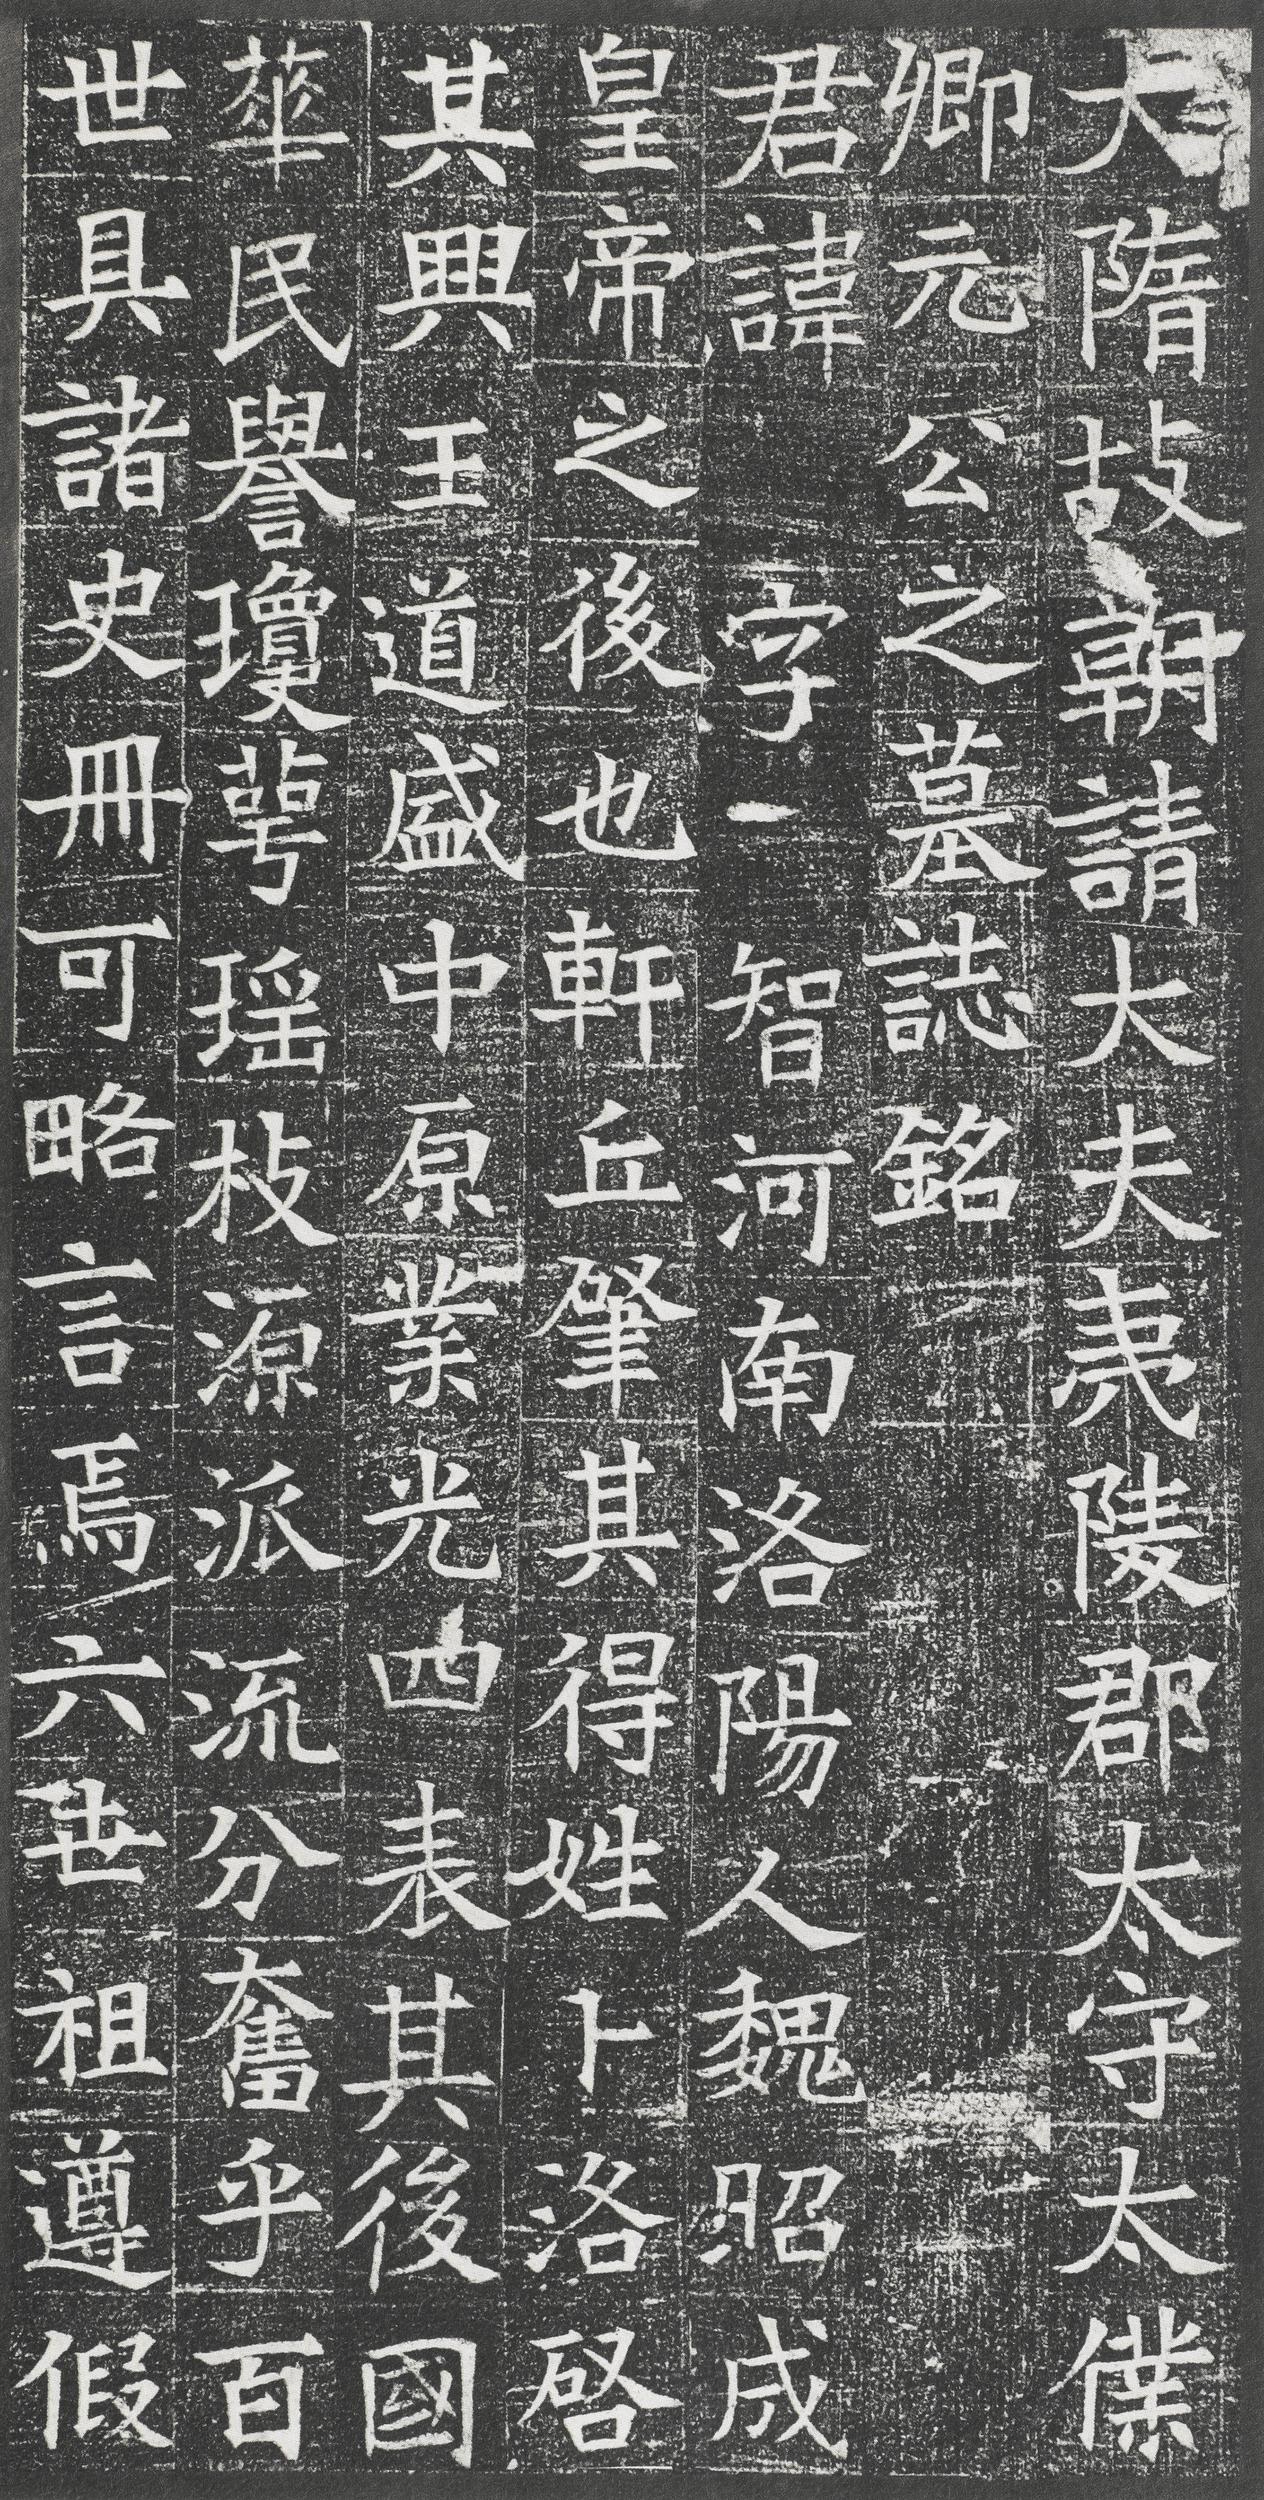 大隋故朝請大夫夷陵郡太守太僕
卿元公之墓誌銘
君諱　字一智河南洛陽人魏昭成
皇帝之後也軒丘肇其得姓卜洛啓
其興王道盛中原業光四表其後國
華民譽瓊萼瑶枝源派流分奮乎百
世具諸史冊可略言焉六世祖遵假